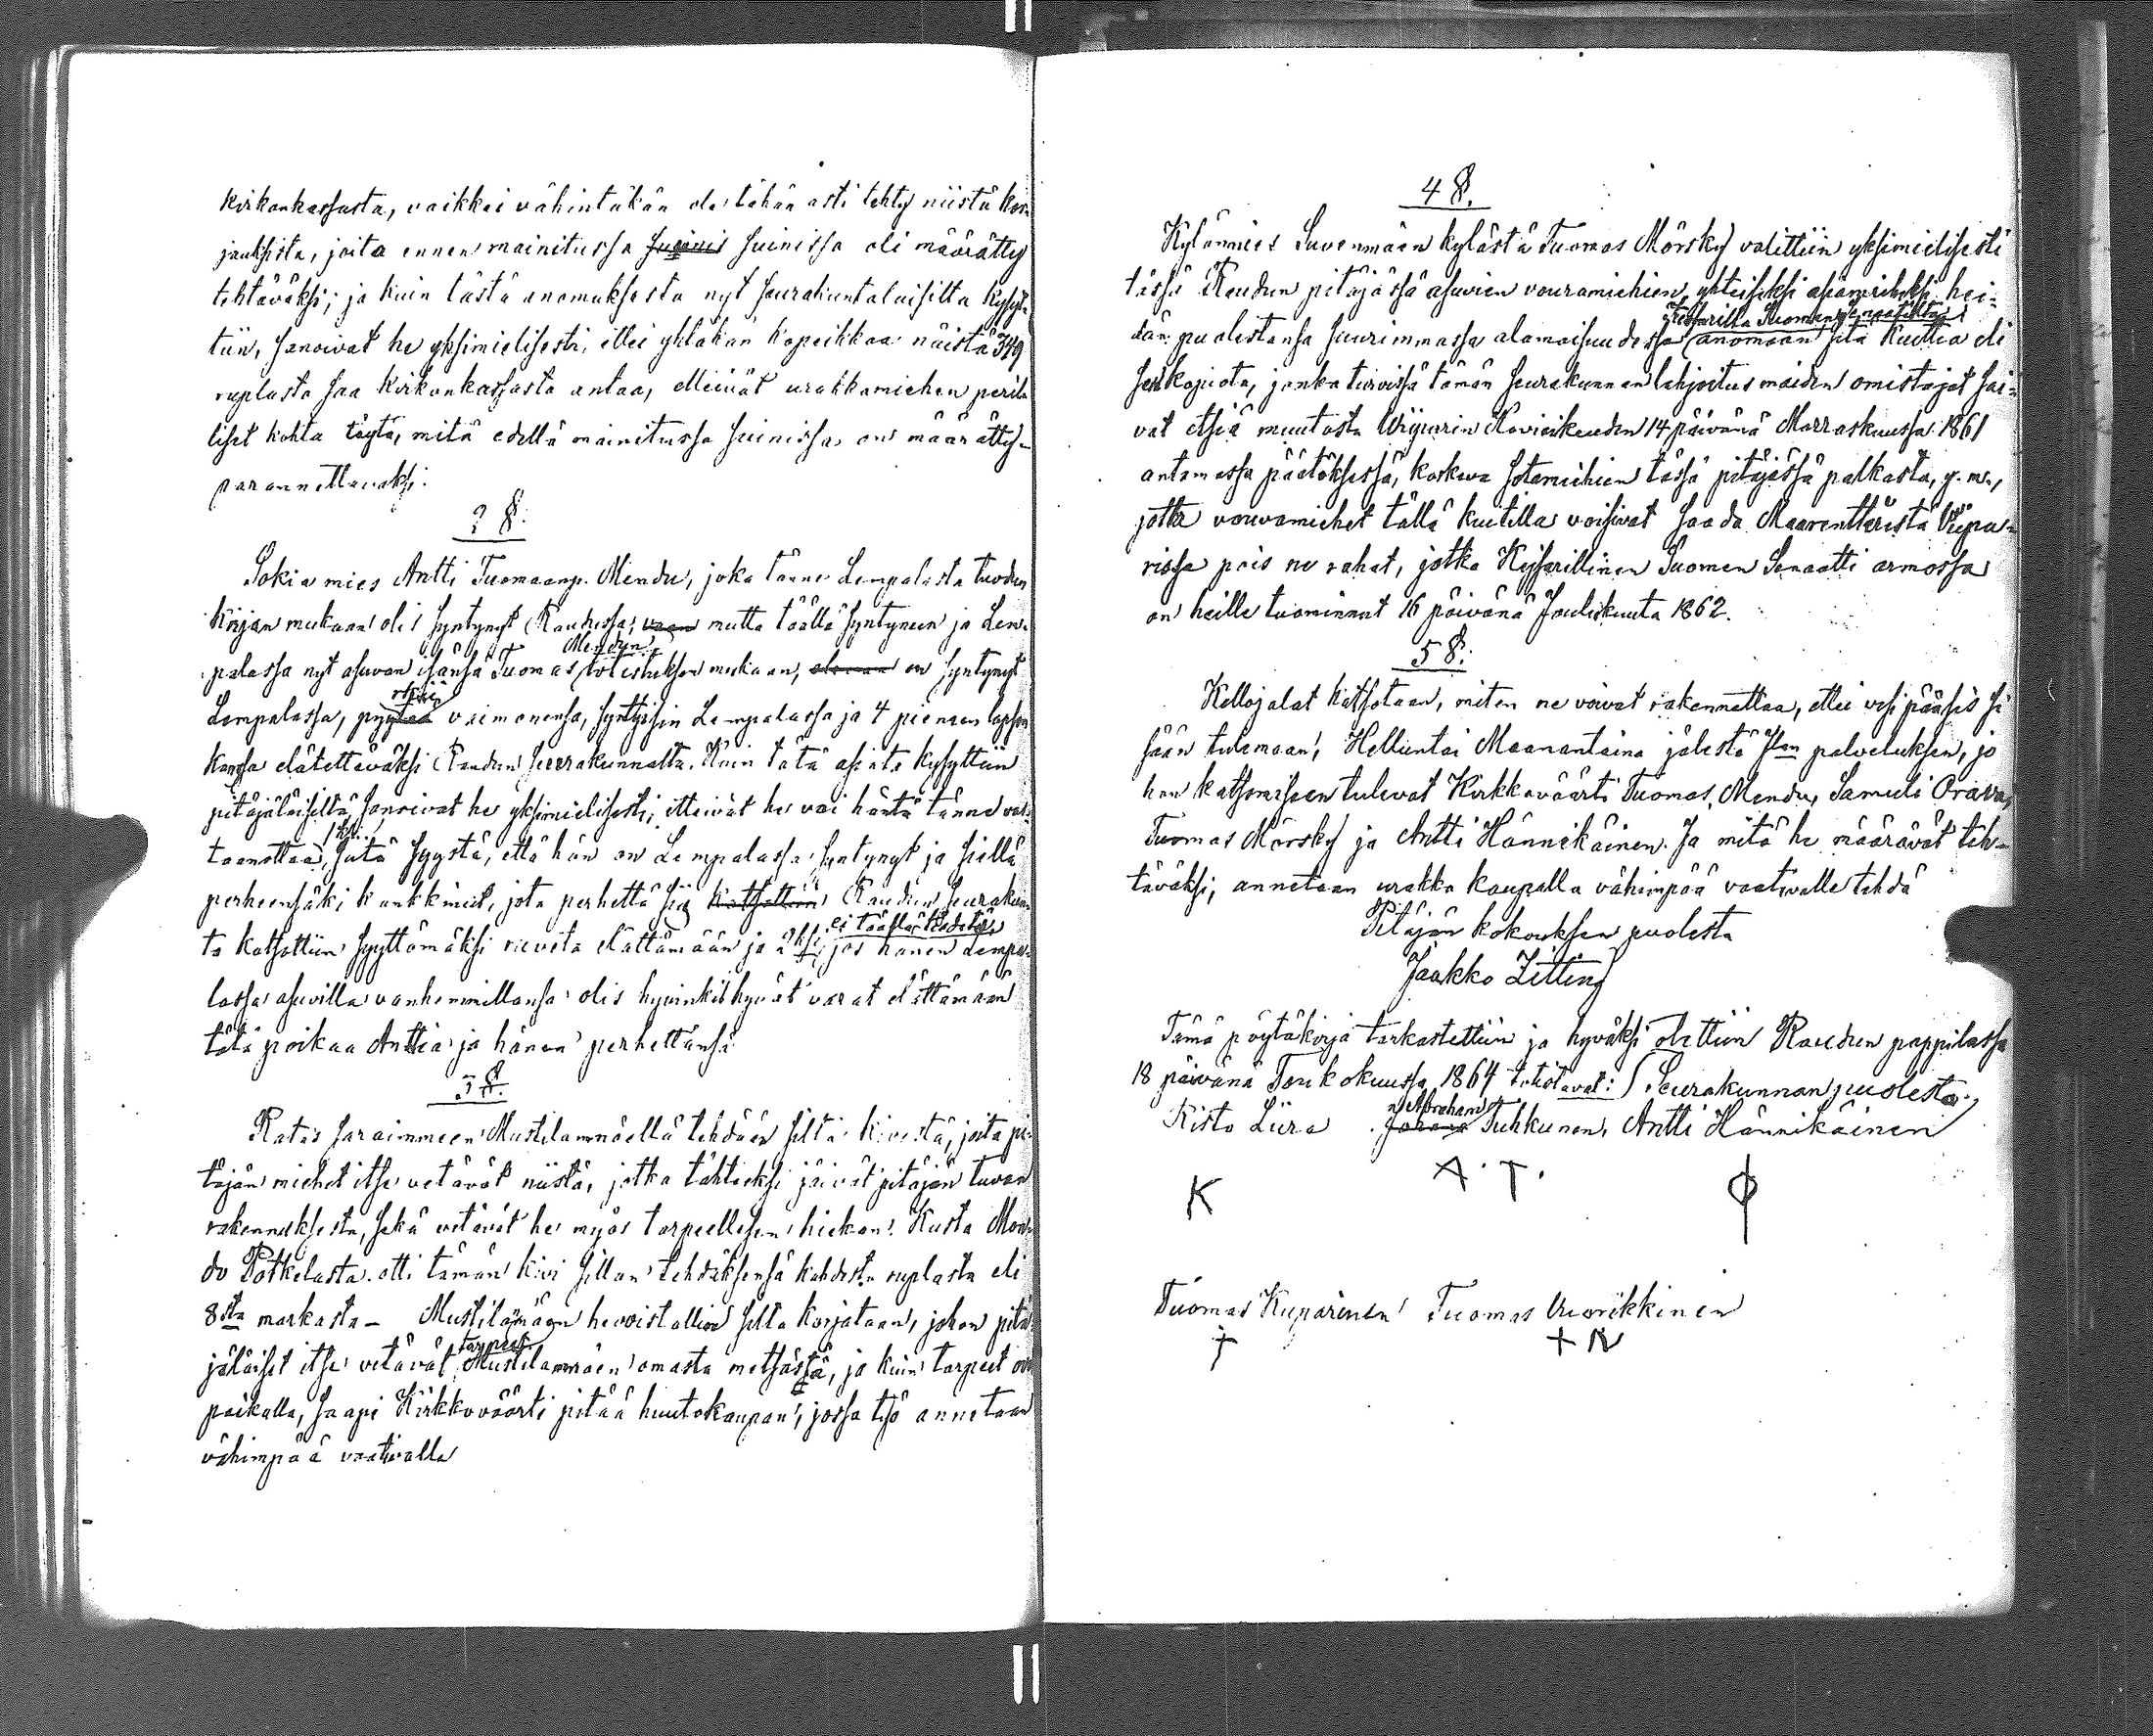 kirkonkassasta, vaikkei vähintäkän ole tähän asti tehty niistä kor-
jauksista, joita ennen mainitussa suinis suinissa oli määrätty
tehtäväksi; ja kuin tästä anomuksesta nyt seurakuntalaisilta kysyt-
tiin, sanoivat he yksimielisesti, ettei yhtäkän kopeikkaa näistä 349
ruplasta saa kirkonkassasta antaa, elleivät urakkamiehen peril-
liset kohta täytä, mitä edellä mainitussa suinissa on määrätty
parannettavaksi.
2 §.
Sokia mies Antti Tuomaanp. Mendu, joka tänne Lempalasta tuodun
kirjan mukaan olis syntynyt Raudussa, vaan mutta täällä syntyneen ja Lem-
palassa nyt asuvan isänsä Tuomas Mendun todistuksen mukaan, on syntynyt
Lempalassa, vaimonensa, syntyisin Lempalassa ja 4 pienen lapsen
kanssa elätettäväksi Raudun seurakunnalta. Kuin tätä asiata kysyttiin
pitäjäläisiltä, sanoivat he yksimielisesti, etteivät he voi häntä tänne vas-
taanottaa, 1ksi siitä syystä, että hän on Lempalassa syntynyt ja siellä
perheensäki hankkinut, jota perhettä katsottiin Raudun seurakun-
ta katsottiin syyttömäksi ruveta elättämään ja 2ksi, jos hänen Lempa-
lassa asuvilla vanhemmillansa olis hyvinkin hyvät varat elättämään
tätä poikaa Anttia ja hänen perhettänsä.
3 §.
Ratas saraimmeen Mustilanmäellä tehdään silta kivestä, joita pi-
täjän miehet itse vetävät niistä, jotka tähteeksi jäivät pitäjän tuvan
rakennuksesta, sekä vetävät he myös tarpeellisen hiekan. Kusta Mon-
do Potkelasta otti tämän kivi sillan tehdäksensä kahdesta ruplasta eli
8sta markasta – Mustilanmäen hevoistallin silta korjataan, johon pitä-
jäläiset itse vetävät tarpeet Mustilanmäen omasta metsästä, ja kuin tarpeet on
paikalla, saapi Kirkkoväärti pitää huutokaupan, jossa työ annetaan
vähimpää vaativalle
4 §.
Kylänmies Suvenmäen kylästä Tuomas Mörsky valittiin yksimielisesti
tässä Raudun pitäjässä asuvien vouramiehien yhteiseksi asiamieheksi hei-
dän puolestansa suurimmassa alamaisuudessa Keisarilta Suomen Senaatilta anomaan sitä kuittia eli
serkopiota, jonka turvissa tämän seurakunnan lahjoitusmaiden omistajat sai-
vat etsiä muutosta Wiipurin Hovioikeuden 14 päivänä Marraskuussa 1861
antamassa päätöksessä, koskeva sotamiehien tässä pitäjässä palkasta, y. m.,
jotta vouvamiehet tällä kuitilla voisivat saada Maarenttäristä Wiipu-
rissa pois ne rahat, jotka Keisarillinen Suomen Senaatti armossa
on heille tuominnut 16 päivänä Joulukuuta 1862.
5 §.
Kellojalat katsotaan, miten ne voivat rakennettaa, ettei vesi pääsis si-
sään tulemaan, Helluntai Maanantaina jälestä Jlan palveluksen, jo-
hon katsomiseen tulevat Kirkkoväärti Tuomas Mendu, Samuli Orava,
Tuomas Mörsky ja Antti Hännikäinen. Ja mitä he määrävät teh-
täväksi, annetaan urakka kaupalla vähimpää vaativalle tehdä
Pitäjän kokouksen puolesta
Jaakko Zitting
Tämä pöytäkirja tarkastettiin ja hyväksi otettiin Raudun pappilassa
18 päivänä Toukokuussa 1864 todistavat: Seurakunnan puolesta
Risto Liira Abraham Johana Tuhkunen, Antti Hännikäinen
K A. T.
Tuomas Kuparinen Tuomas Vuorikkinen
+ N